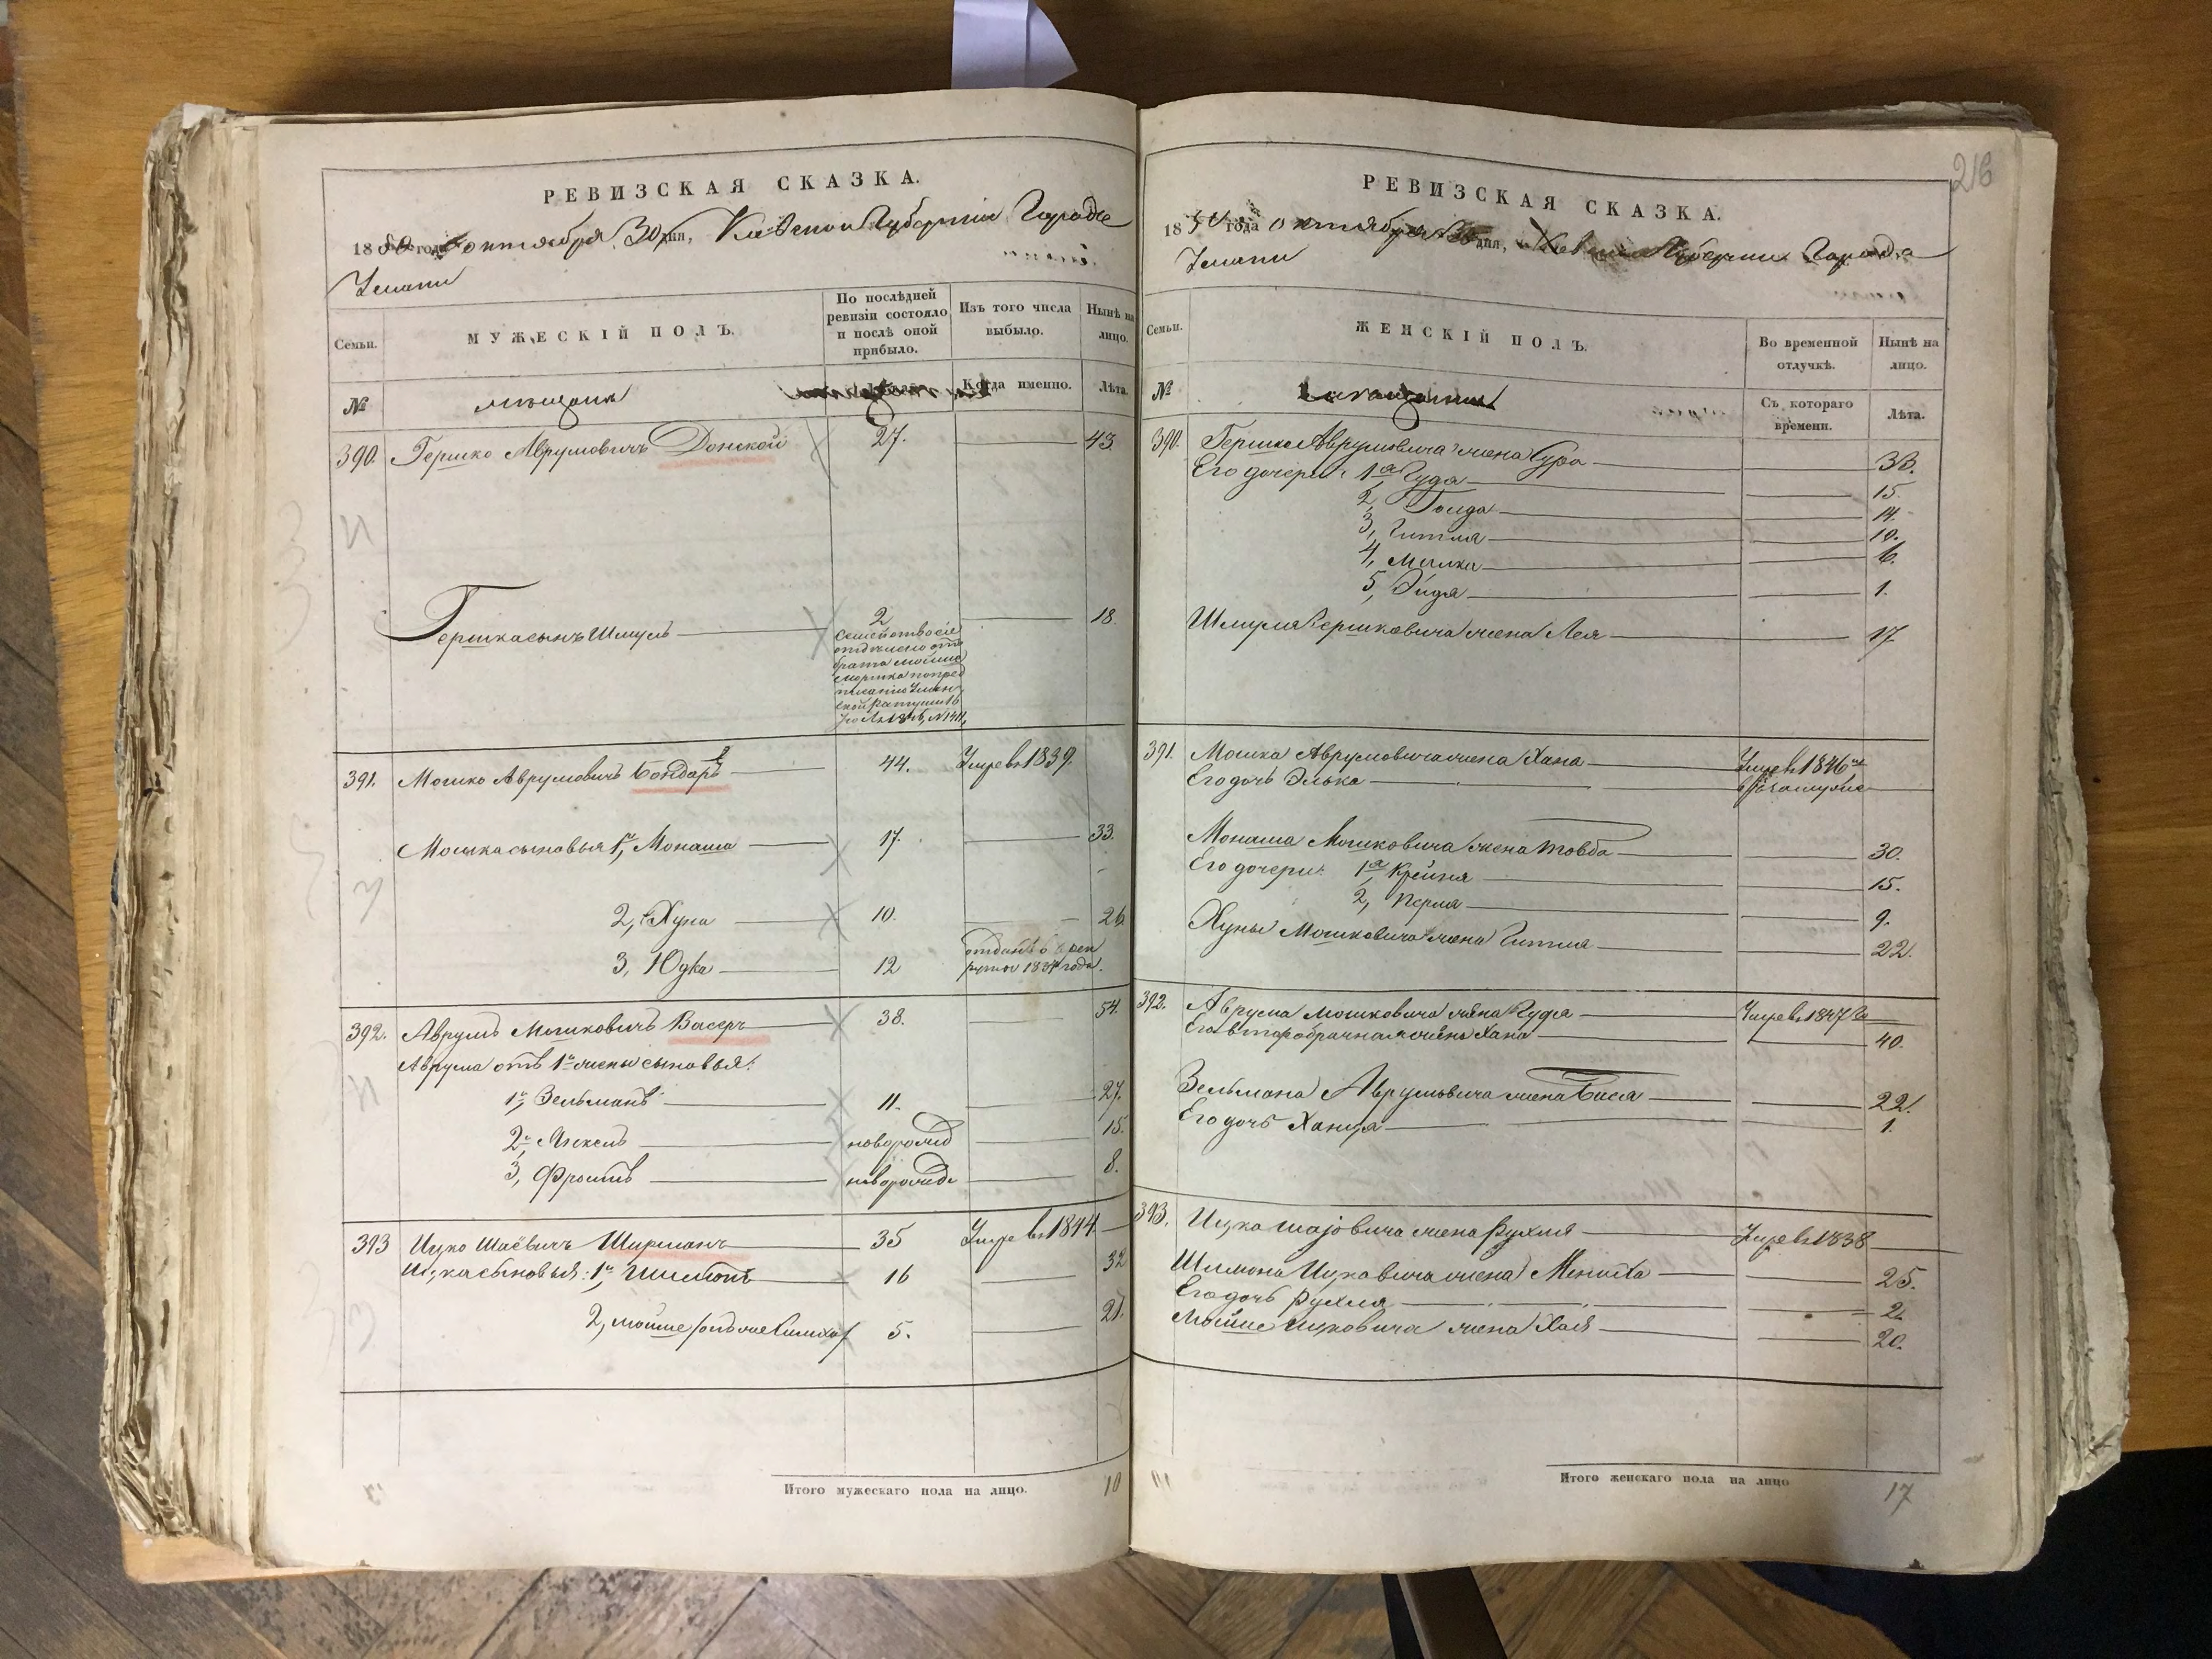 РЕВИЗСКАЯ СКАЗКА.
1850 года октября 30 дня, Киевской Губернии Города
Умани
Семьи.
МУЖЕСКІЙ ПОЛЪ.
По послѣдней ревизіи состояло и послѣ оной прибыло.
Изъ того числа выбыло.
Нынѣ на лицо.
№
мѣщане
Когда именно.
Лѣта.
390. Гершко Аврумовичъ Донской 27. 43.
Гершка сынъ Шмуль 2 18.
семейство сіе
отдѣлено отъ
брата
391. Мошко Аврумовичъ Бондарь 44. Умре въ 1839.
Мошка сыновья 1й, Монаша 17. 33.
2, Хуна 10. 26
3, Юдка 12 отданъ в рек
руты 1834 года.
392. Аврумъ Мошковичъ Васеръ 38. 54.
Аврума отъ 1й жены сыновья:
1й, Зельманъ 11. 27.
2й, Лейзель новорожд 15.
3, Фроимъ новорожд 8.
393 Ицко Шаёвичъ Ширманъ 35 Умре въ 1844.
Ицка сыновья: 1й Шимонъ 16 32
2, Мойше 5. 21.
Итого мужескаго пола на лицо. 10
216
РЕВИЗСКАЯ СКАЗКА.
1850 года октября 30 дня, Киевской Губернии Города
Умани
Семьи.
ЖЕНСКІЙ ПОЛЪ.
Во временной отлучкѣ.
Нынѣ на лицо.
№
Съ котораго времени.
Лѣта.
390. Гершка Аврумовича жена Сура 33.
Его дочери: 1я Гуда 15.
2, Голда 14.
3, Гитля 10.
4, Малка 6.
5, Эйдя 1.
Шмуля Гершковича жена Лея 17
391. Мошка Аврумовича жена Хана Умре въ 1846
Его дочь Элька в замужъе
Монаша Мошковича жена Товба 30.
Его дочери: 1я Крейня 15.
2, Перля 9.
Хуны Мошковича жена Гитля 22.
392. Аврума Мошковича жена Гудя Умре въ 1847 г
Его второбрачная жена Хана 40.
Зельмана Аврумовича жена Бася 22.
Его дочь Ханця 1.
393. Ицка Шаіовича жена Рухля Умре въ 1838
Шимона Ицковича жена Мениха 25.
Его дочь Рухля 2
Мойше Ицковича жена Хая 20.
Итого женскаго пола на лицо 17